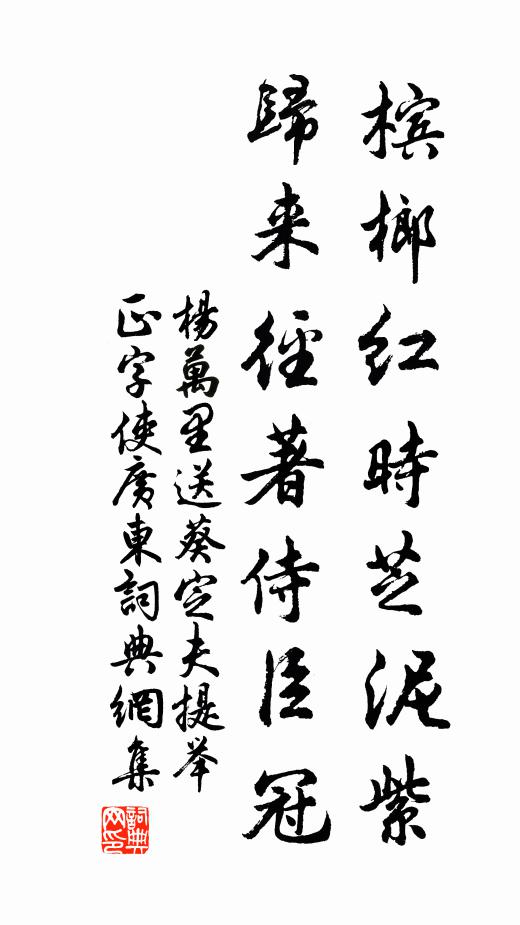 槟榔红時芝泥紫
歸来徑著侍臣冠
楊萬里送葵定夫提举
正字使廣東詞典網集
詞典
网印